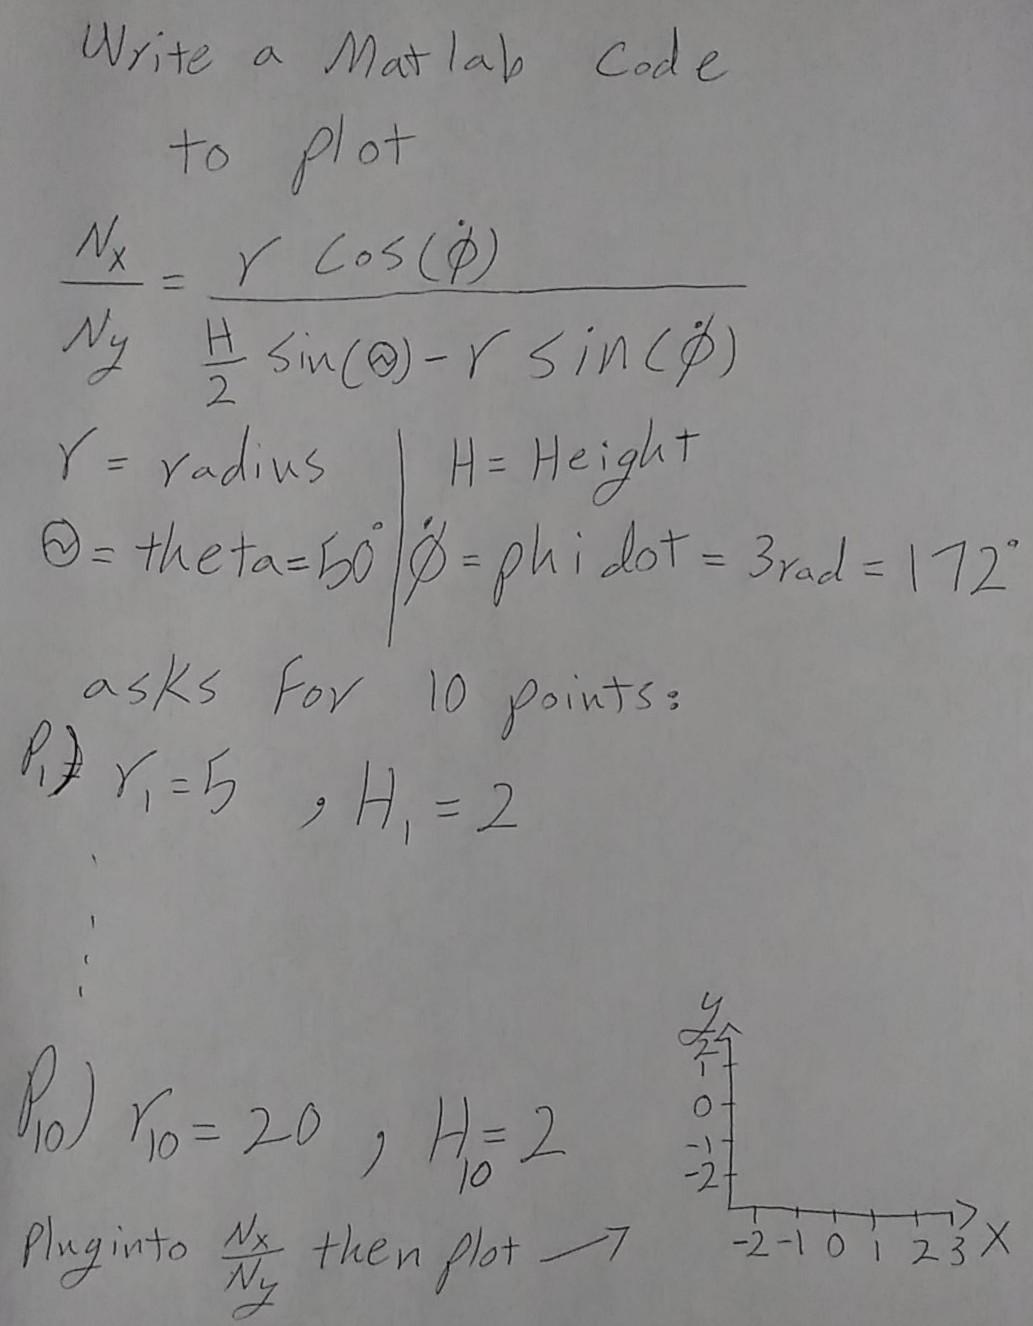 Write a Matlab Code
to plot
Nx/Ny = r cos(φ̇) / (H/2 sin(Θ) - r sin(φ̇))
r = radius | H = Height
Θ = theta = 50° | φ̇ = phi dot = 3rad = 172°
asks For 10 points:
P₁) r₁ = 5 , H₁ = 2
P₁₀) r₁₀ = 20 , H₁₀ = 2
Plug into Nx/Ny then plot →
y
2
1
0
-1
-2
-2 -1 0 1 2 3 X